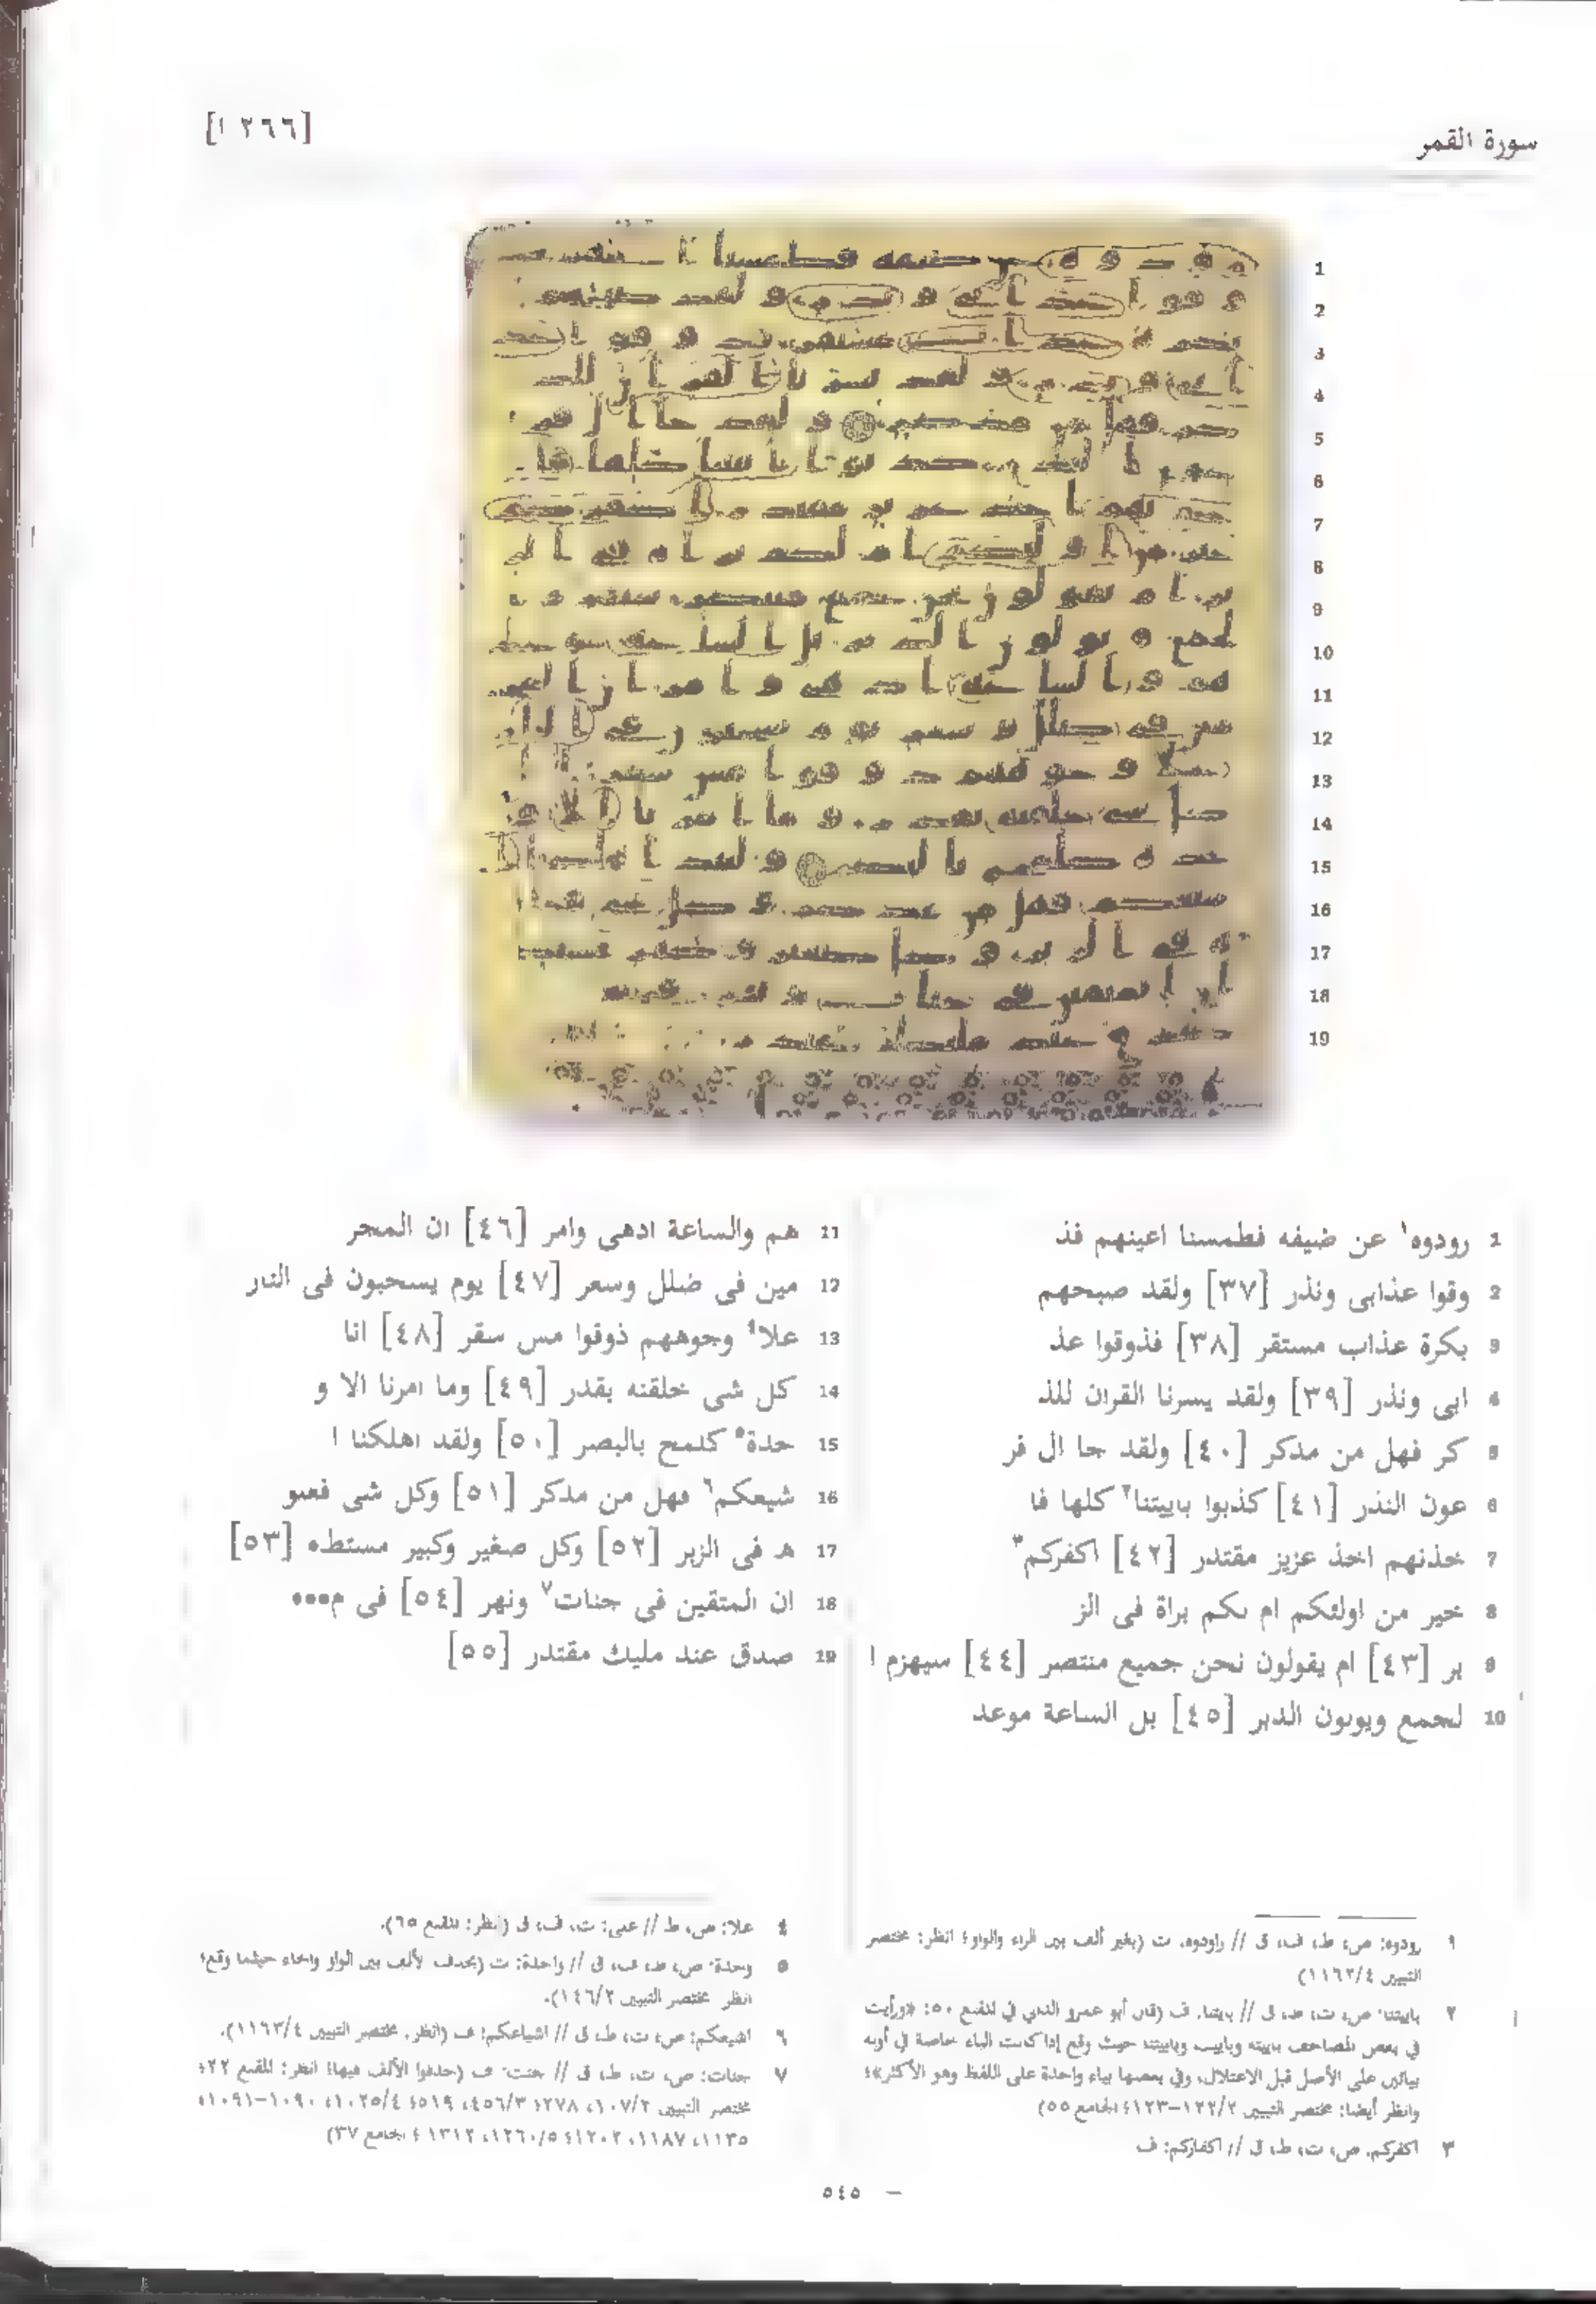 سورة القمر
[٢٦٦ ا]
1 رودوه١ عن ضيفه فطمسنا اعينهم فذ
2 وقوا عذابى ونذر [٣٧] ولقد صبحهم
3 بكرة عذاب مستقر [٣٨] فذوقوا عذ
4 ابى ونذر [٣٩] ولقد يسرنا القران للذ
5 كر فهل من مدكر [٤٠] ولقد جا ال فر
6 عون النذر [٤١] كذبوا باييتنا٢ كلها فا
7 خذنهم اخذ عزيز مقتدر [٤٢] اكفركم٣
8 خير من اولئكم ام لكم براة فى الز
9 بر [٤٣] ام يقولون نحن جميع منتصر [٤٤] سيهزم ا
10 لجمع ويولون الدبر [٤٥] بل الساعة موعد
11 هم والساعة ادهى وامر [٤٦] ان المجر
12 مين فى ضلل وسعر [٤٧] يوم يسحبون فى النار
13 علا٤ وجوههم ذوقوا مس سقر [٤٨] انا
14 كل شى خلقنه بقدر [٤٩] وما امرنا الا و
15 حدة٥ كلمح بالبصر [٥٠] ولقد اهلكنا ا
16 شيعكم٦ فهل من مدكر [٥١] وكل شى فعلو
17 ه فى الزبر [٥٢] وكل صغير وكبير مستطه [٥٣]
18 ان المتقين فى جنات٧ ونهر [٥٤] فى م•••
19 صدق عند مليك مقتدر [٥٥]
١ رودوه: ص، ط، ف، ق // راودوه، ت (بغير ألف بين الراء والواو؛ انظر: مختصر
التبيين ١١٦٣/٤)
٢ باييتنا: ص، ت، ط، ق // بايتنا. ف (قال أبو عمرو الداني في المقنع ٥٠: «ورأيت
في بعض المصاحف باييته وباييت وباييتنا حيث وقع إذا كانت الباء خاصة في أوله
بيائين على الأصل قبل الاعتلال، وفي بعضها بياء واحدة على اللفظ وهو الأكثر»؛
وانظر أيضا: مختصر التبيين ١٢٢/٢–١٢٣؛ الجامع ٥٥)
٣ اكفركم. ص، ت، ط، ق // اكفاركم: ف
٤ علا: ص، ط // على: ت، ف، ق (انظر: المقنع ٦٥).
٥ وحدة: ص، ط، ف، ق // واحدة: ت (بحذف الألف بين الواو والحاء حيثما وقع؛
انظر مختصر التبيين ١٤٦/٢).
٦ اشيعكم: ص، ت، ط، ق // اشياعكم: ف (انظر. مختصر التبيين ١١٦٣/٤).
٧ جنات: ص، ت، ط، ق // جنت: ف (حذفوا الألف فيها؛ انظر: المقنع ٢٢؛
مختصر التبيين ١٠٧/٢، ٢٧٨؛ ٤٥٦/٣، ٥١٩؛ ١٠٢٥/٤، ١٠٩٠–١٠٩١،
١١٣٥، ١١٨٧، ١٢٠٢؛ ١٢٦٠/٥، ١٣١٢؛ الجامع ٣٧)
– ٥٤٥